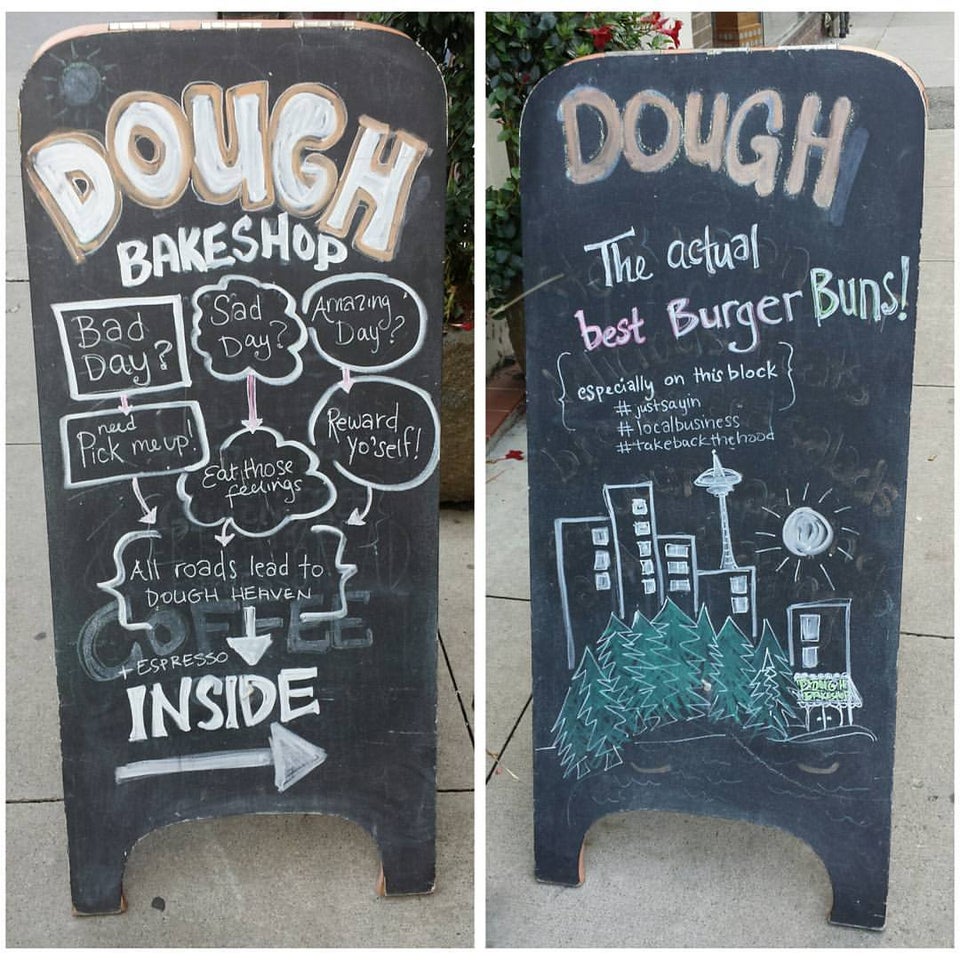 DOUGH
BAKESHOP
Bad
Day?
Sad
Day?
Amazing
Day?
need
Pick me up!
Eat those
feelings
Reward
Yo'self!
All roads lead to
DOUGH HEAVEN
COFFEE
+ ESPRESSO
INSIDE
DOUGH
The actual
best Burger Buns!
especially on this block
#justsayin
#localbusiness
#takebackthehood
DOUGH
BAKESHOP